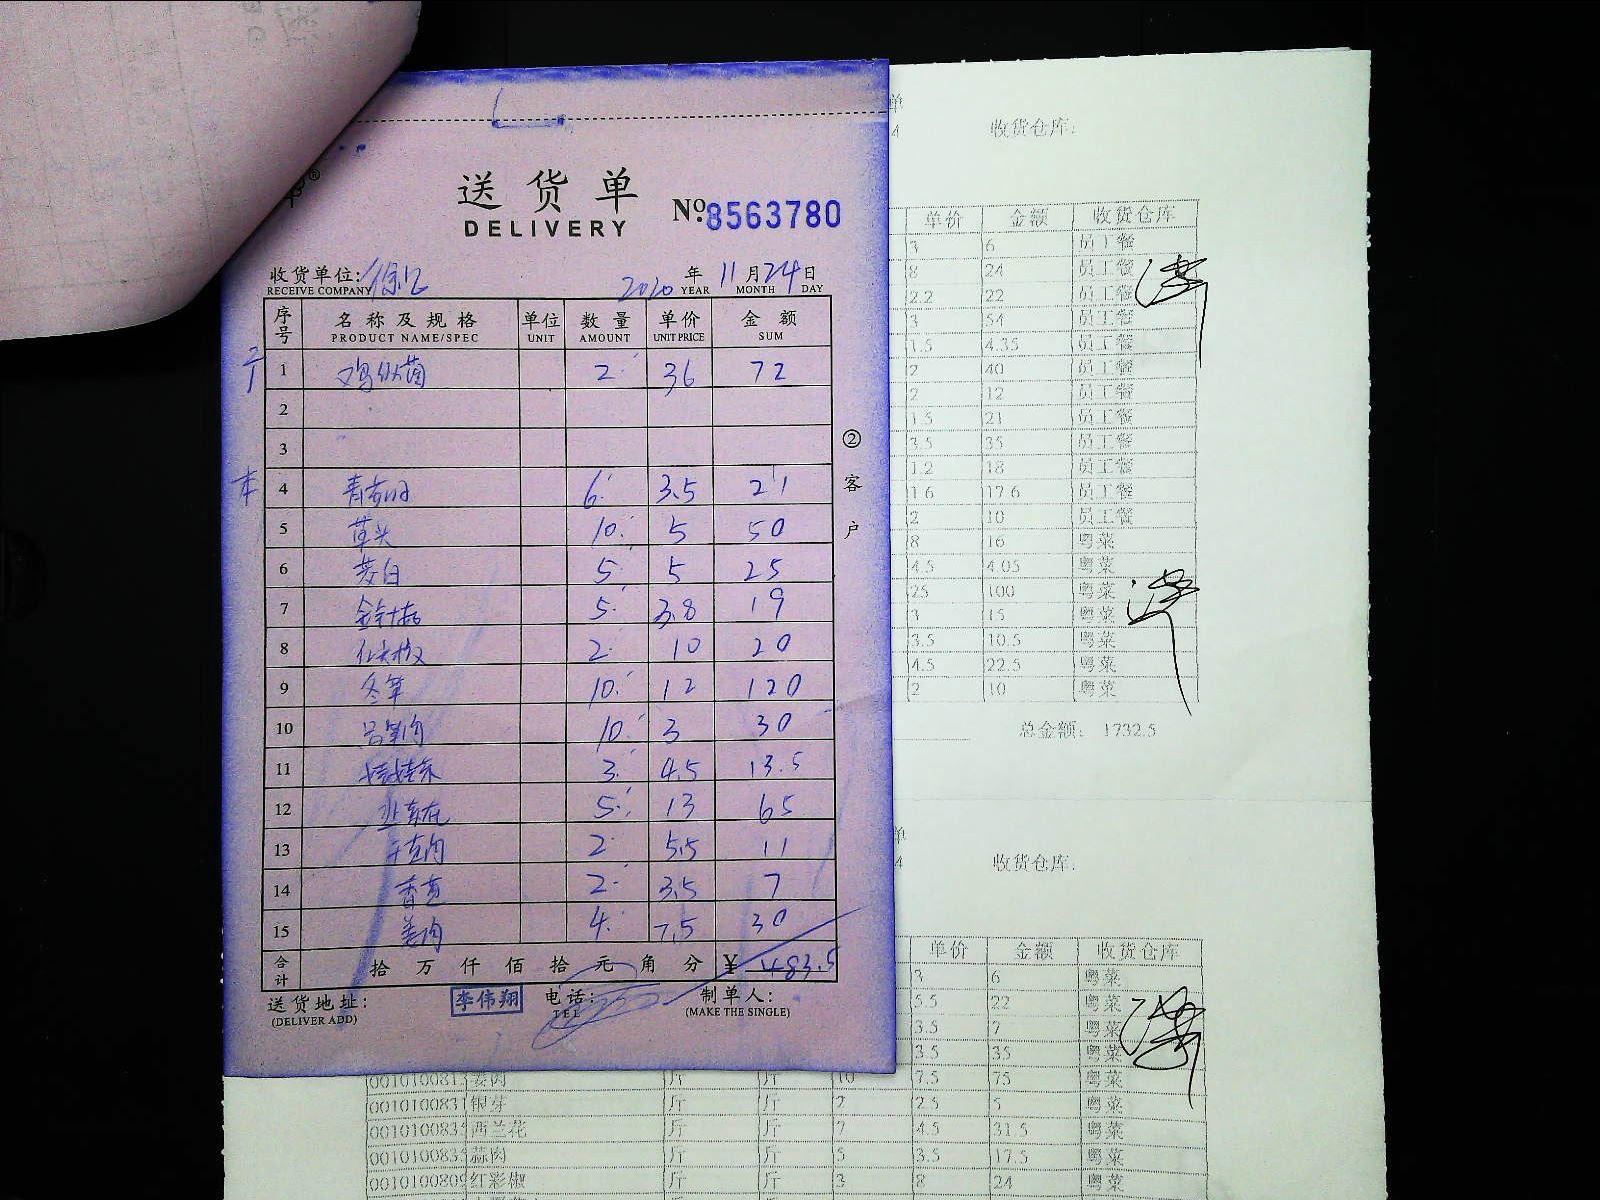 送货单
DELIVERY
No.8563780
收货单位:徐汇 2020年11月24日
RECEIVE COMPANY YEAR MONTH DAY
序号 名称及规格 单位 数量 单价 金额
PRODUCT NAME/SPEC UNIT AMOUNT UNIT PRICE SUM
1 鸡纵菌 2 36 72
2
3
4 6 3.5 21
5 草头 10 5 50
6 茭白 5 5 25
7 金针菇 5 3.8 19
8 2 10 20
9 冬笋 10 12 120
10 10 3 30
11 娃娃菜 3 4.5 13.5
12 5 13 65
13 2 5.5 11
14 香芹 2 3.5 7
15 姜肉 4 7.5 30
合计 拾 万 仟 佰 拾 元 角 分 ¥ 483.5
送货地址: 李伟翔 电话: 制单人:
(DELIVER ADD) TEL (MAKE THE SINGLE)
②客户
单
4 收货仓库:
单价 金额 收货仓库
3 6 员工餐
8 24 员工餐
2.2 22 员工餐
3 54 员工餐
1.5 4.35 员工餐
2 40 员工餐
2 12 员工餐
1.5 21 员工餐
3.5 35 员工餐
1.2 18 员工餐
1.6 17.6 员工餐
2 10 员工餐
8 16 粤菜
4.5 4.05 粤菜
25 100 粤菜
3 15 粤菜
3.5 10.5 粤菜
4.5 22.5 粤菜
2 10 粤菜
总金额: 1732.5
单
4 收货仓库:
单价 金额 收货仓库
3 6 粤菜
5.5 22 粤菜
3.5 7 粤菜
3.5 35 粤菜
姜肉 斤 斤 10 7.5 75 粤菜
银芽 斤 斤 2 2.5 5 粤菜
西兰花 斤 斤 7 4.5 31.5 粤菜
蒜肉 斤 斤 5 3.5 17.5 粤菜
红彩椒 斤 斤 3 8 24 粤菜